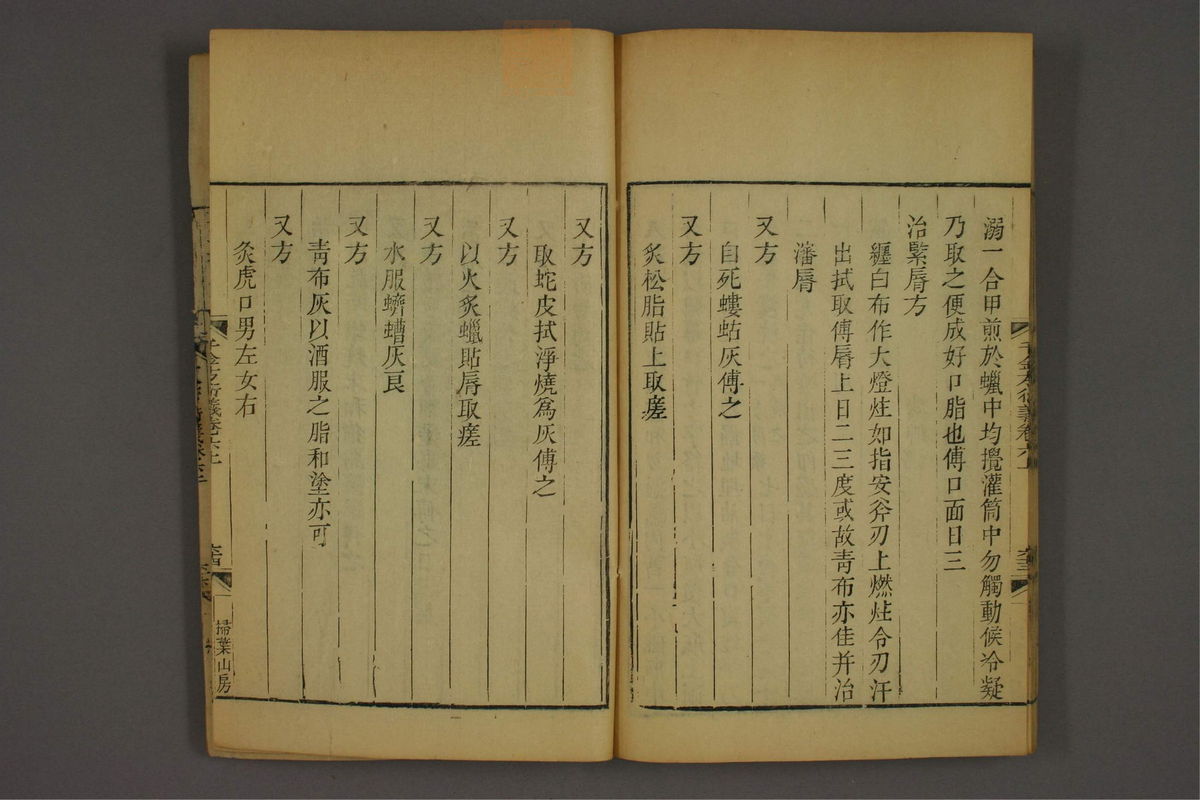 溺一合甲煎於蠟中均攪灌筒中勿觸動候冷凝
乃取之便成好口脂也傅口面日三
治緊脣方
纏白布作大燈炷如指安斧刃上燃炷令刃汗
出拭取傅脣上日二三度或故青布亦佳并治
瀋脣
又方
自死螻蛄灰傅之
又方
炙松脂貼上取瘥
又方
取蛇皮拭淨燒爲灰傅之
又方
以火炙蠟貼脣取瘥
又方
水服蠐螬灰良
又方
靑布灰以酒服之脂和塗亦可
又方
灸虎口男左女右
千金方衍義卷六上
掃葉山房